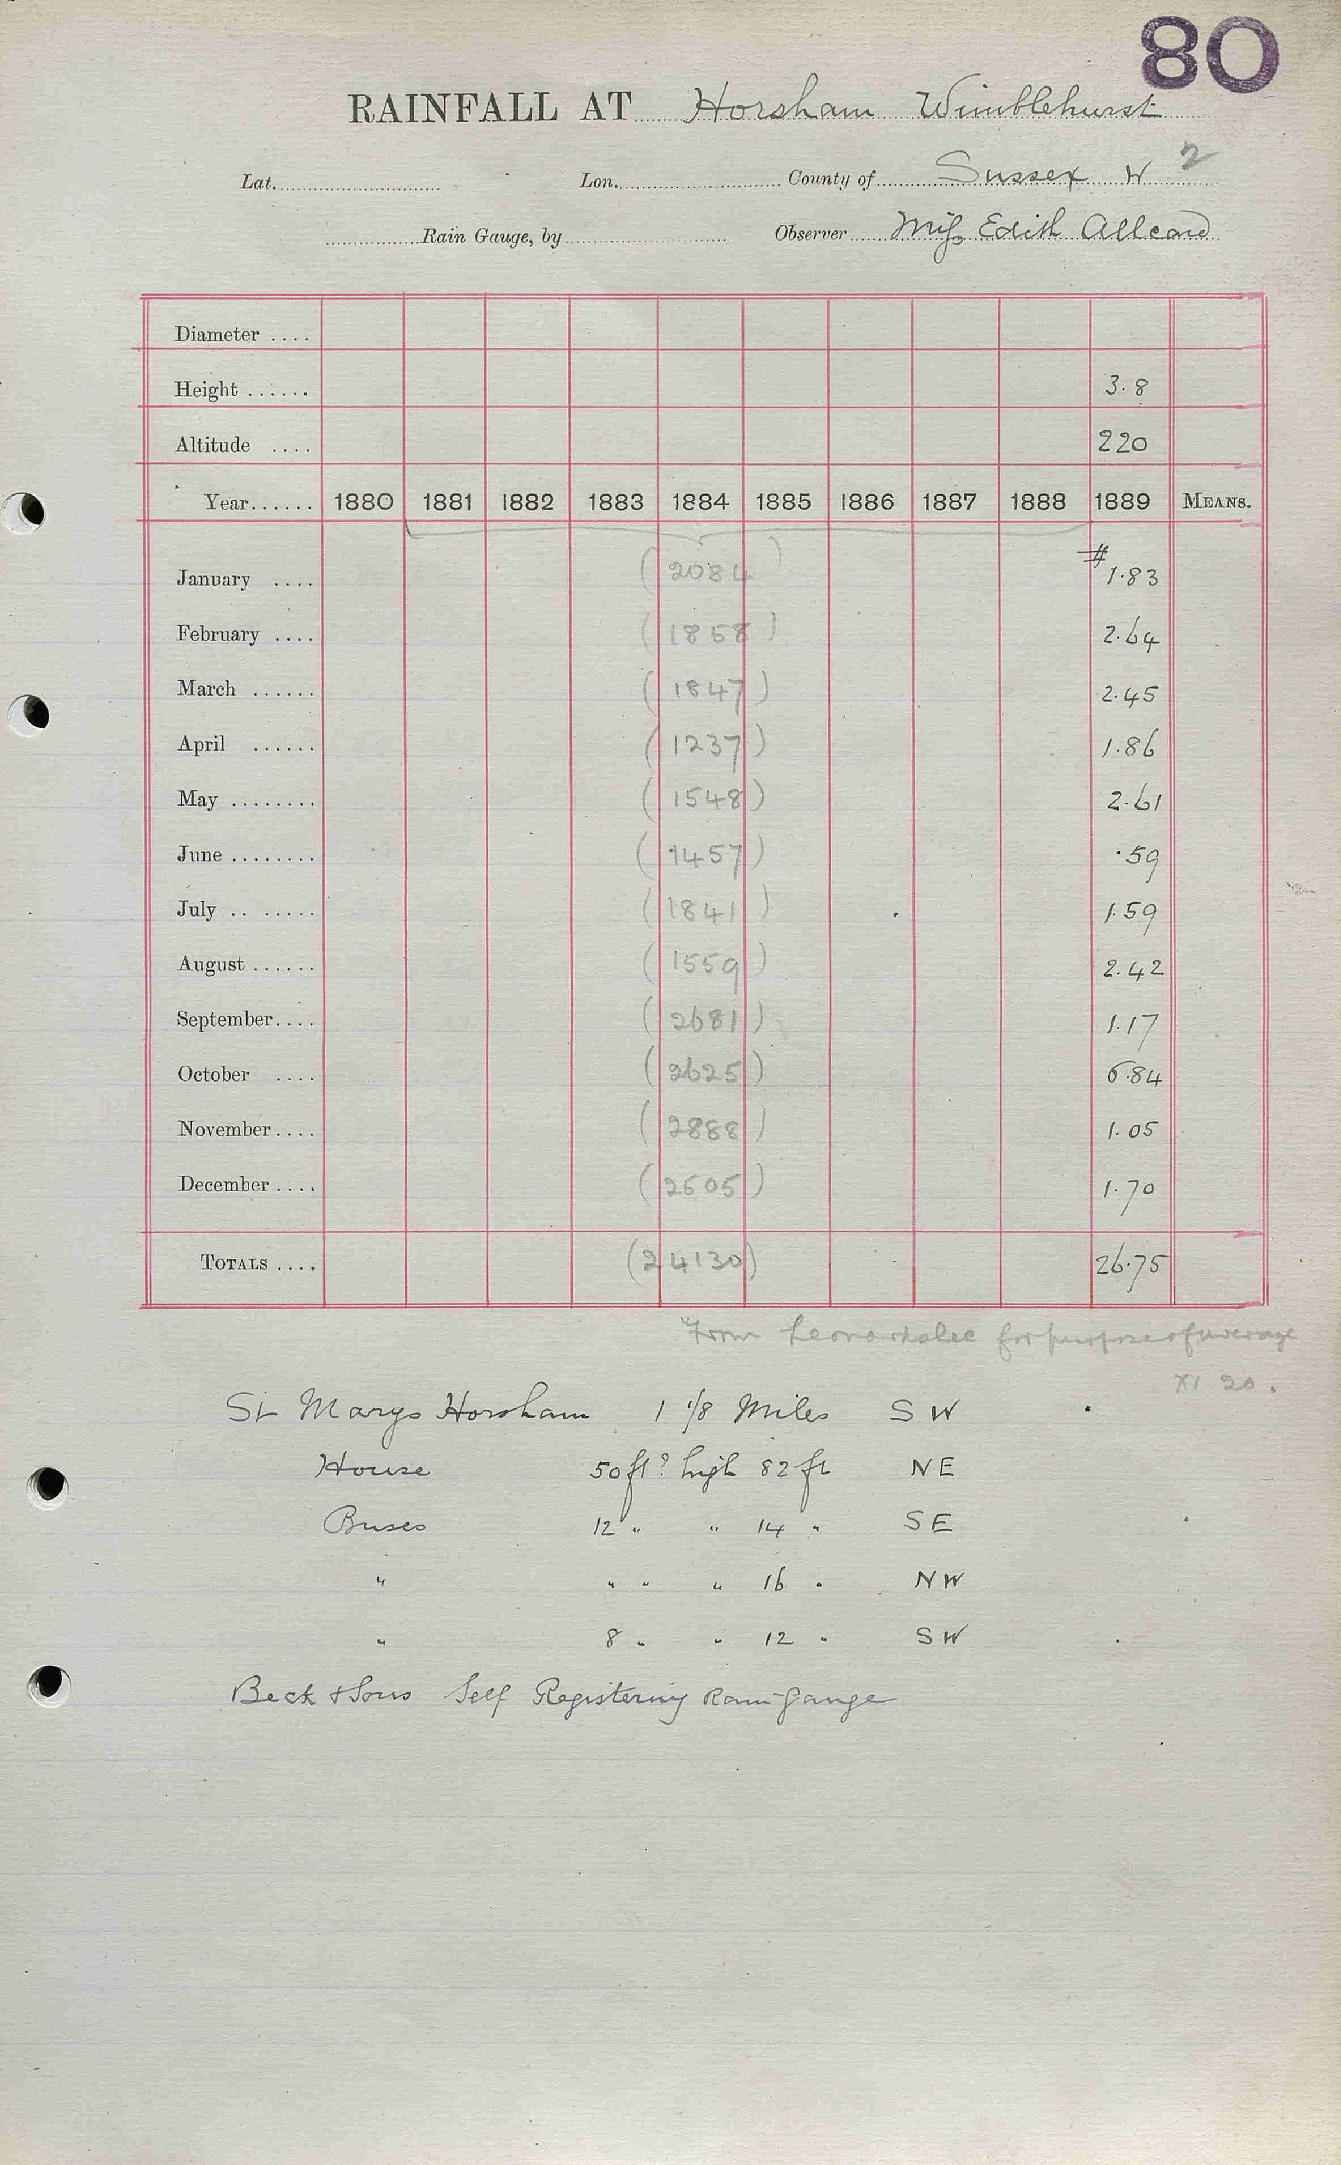 80
RAINFALL AT Horsham Wimblehurst
Lat. Lon. County of Sussex W 2
Rain Gauge, by Observer Miss Edith Allcard
Diameter ....
Height ...... 3.8
Altitude .... 220
Year...... 1880 1881 1882 1883 1884 1885 1886 1887 1888 1889 MEANS.
January .... (2084) # 1.83
February .... (1858) 2.64
March ...... (1847) 2.45
April ...... (1237) 1.86
May ........ (1548) 2.61
June ........ (1457) .59
July .. ...... (1841) 1.59
August ...... (1559) 2.42
September.... (2681) 1.17
October .... (2625) 6.84
November.... (2888) 1.05
December.... (2505) 1.70
TOTALS .... (24130) 26.75
From Leonardslee for purpose of average
XI 20.
St Marys Horsham 1 1/8 Miles SW
House 50 ft? high 82 ft NE
Buses 12 " " 14 " SE
" " " " 16 " NW
" 8 " " 12 " SW
Beck & Sons Self Registering Rain Gauge